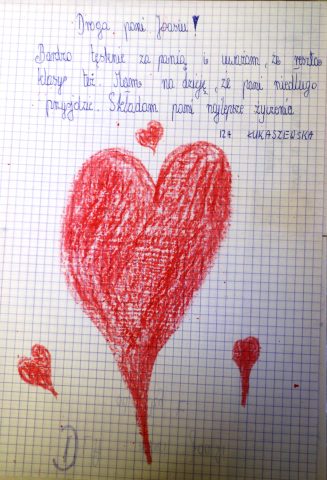 Droga pani Joasiu!
Bardzo tęsknie za panią i uważam, że reszta
klasy też. Mam na dzieję, że pani niedługo
przyjdzie. Składam pani najlepsze życzenia
IZA ŁUKASZEWSKA
D